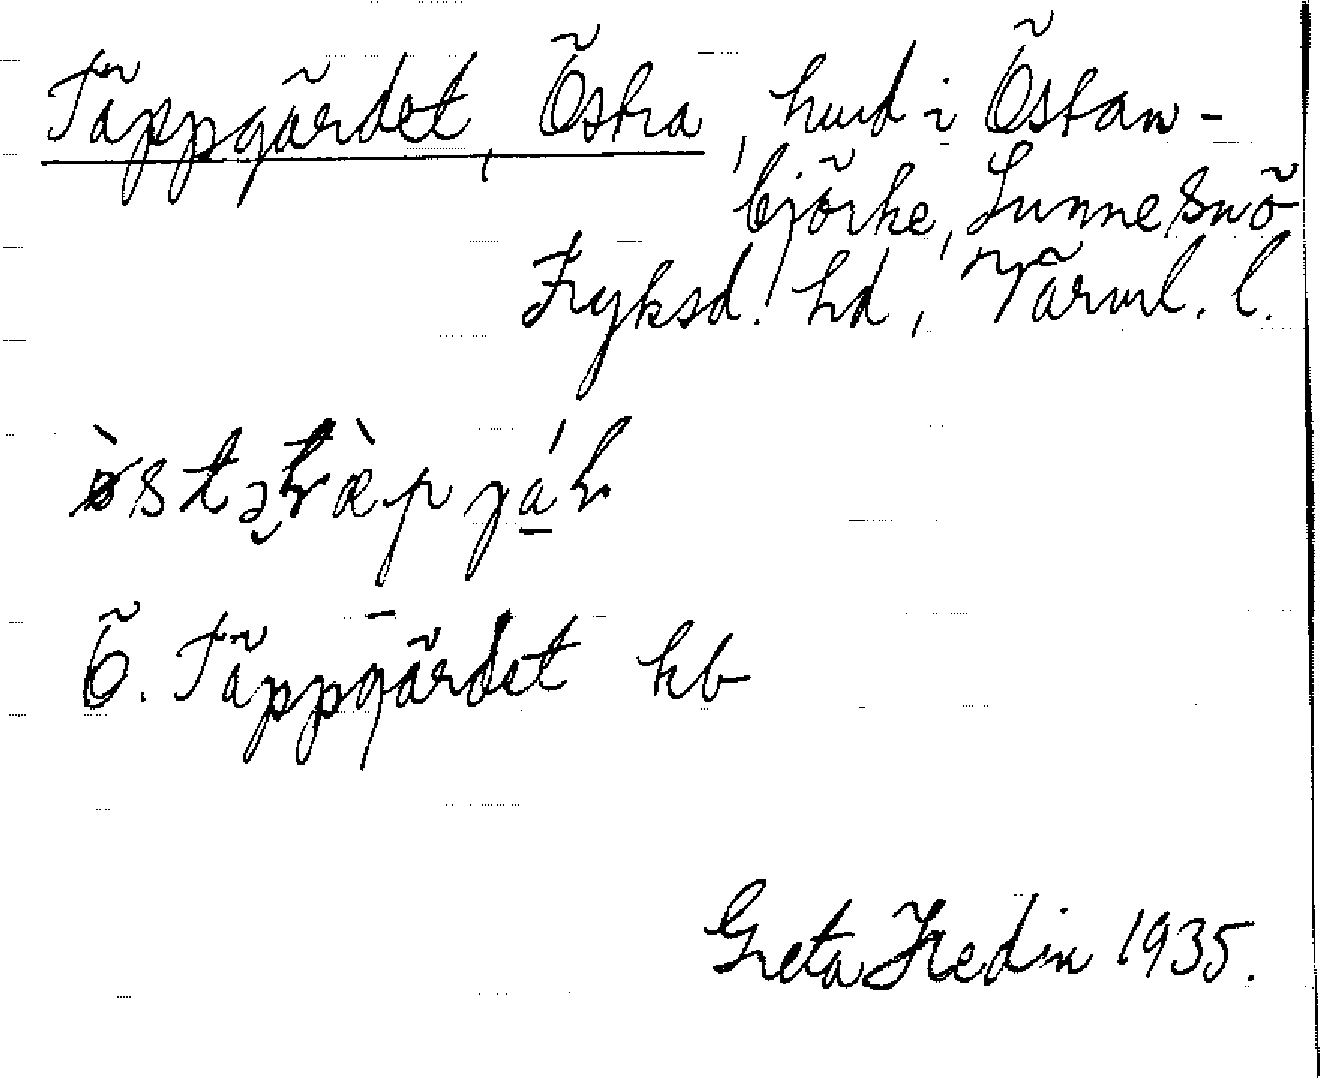 Täppgärdet, Östra, hmd i Östan-
björke, Sunne snö
Fryksd. hd, Värml. l.
Ö. Täppgärdet kb
Greta Hedin 1935.